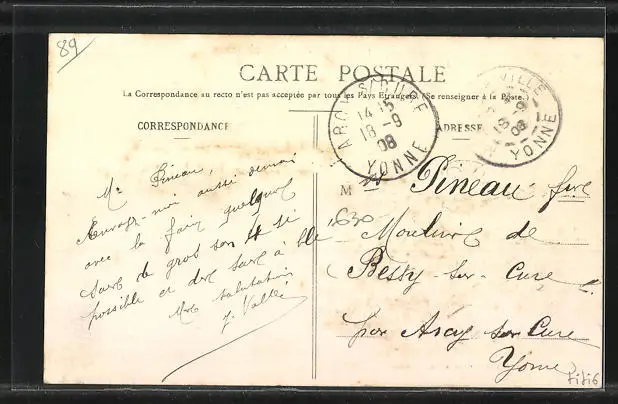 89
CARTE POSTALE
La Correspondance au recto n'est pas acceptée par tous les Pays Etrangers. (Se renseigner à la Poste.)
CORRESPONDANCE
ADRESSE
ARCY-S-CURE
14 15
18 - 9
08
YONNE
VILLE
18 - 9
08
YONNE
Mr Pineau,
Envoyez-moi aussi demain
avec la farine quelques
sacs de gros son 4 si
possible et des sacs à blé
Mes salutations
J. Vallé
1630
M Pineau fils
Moulins de
Bessy-sur-Cure
par Arcy sur Cure
Yonne